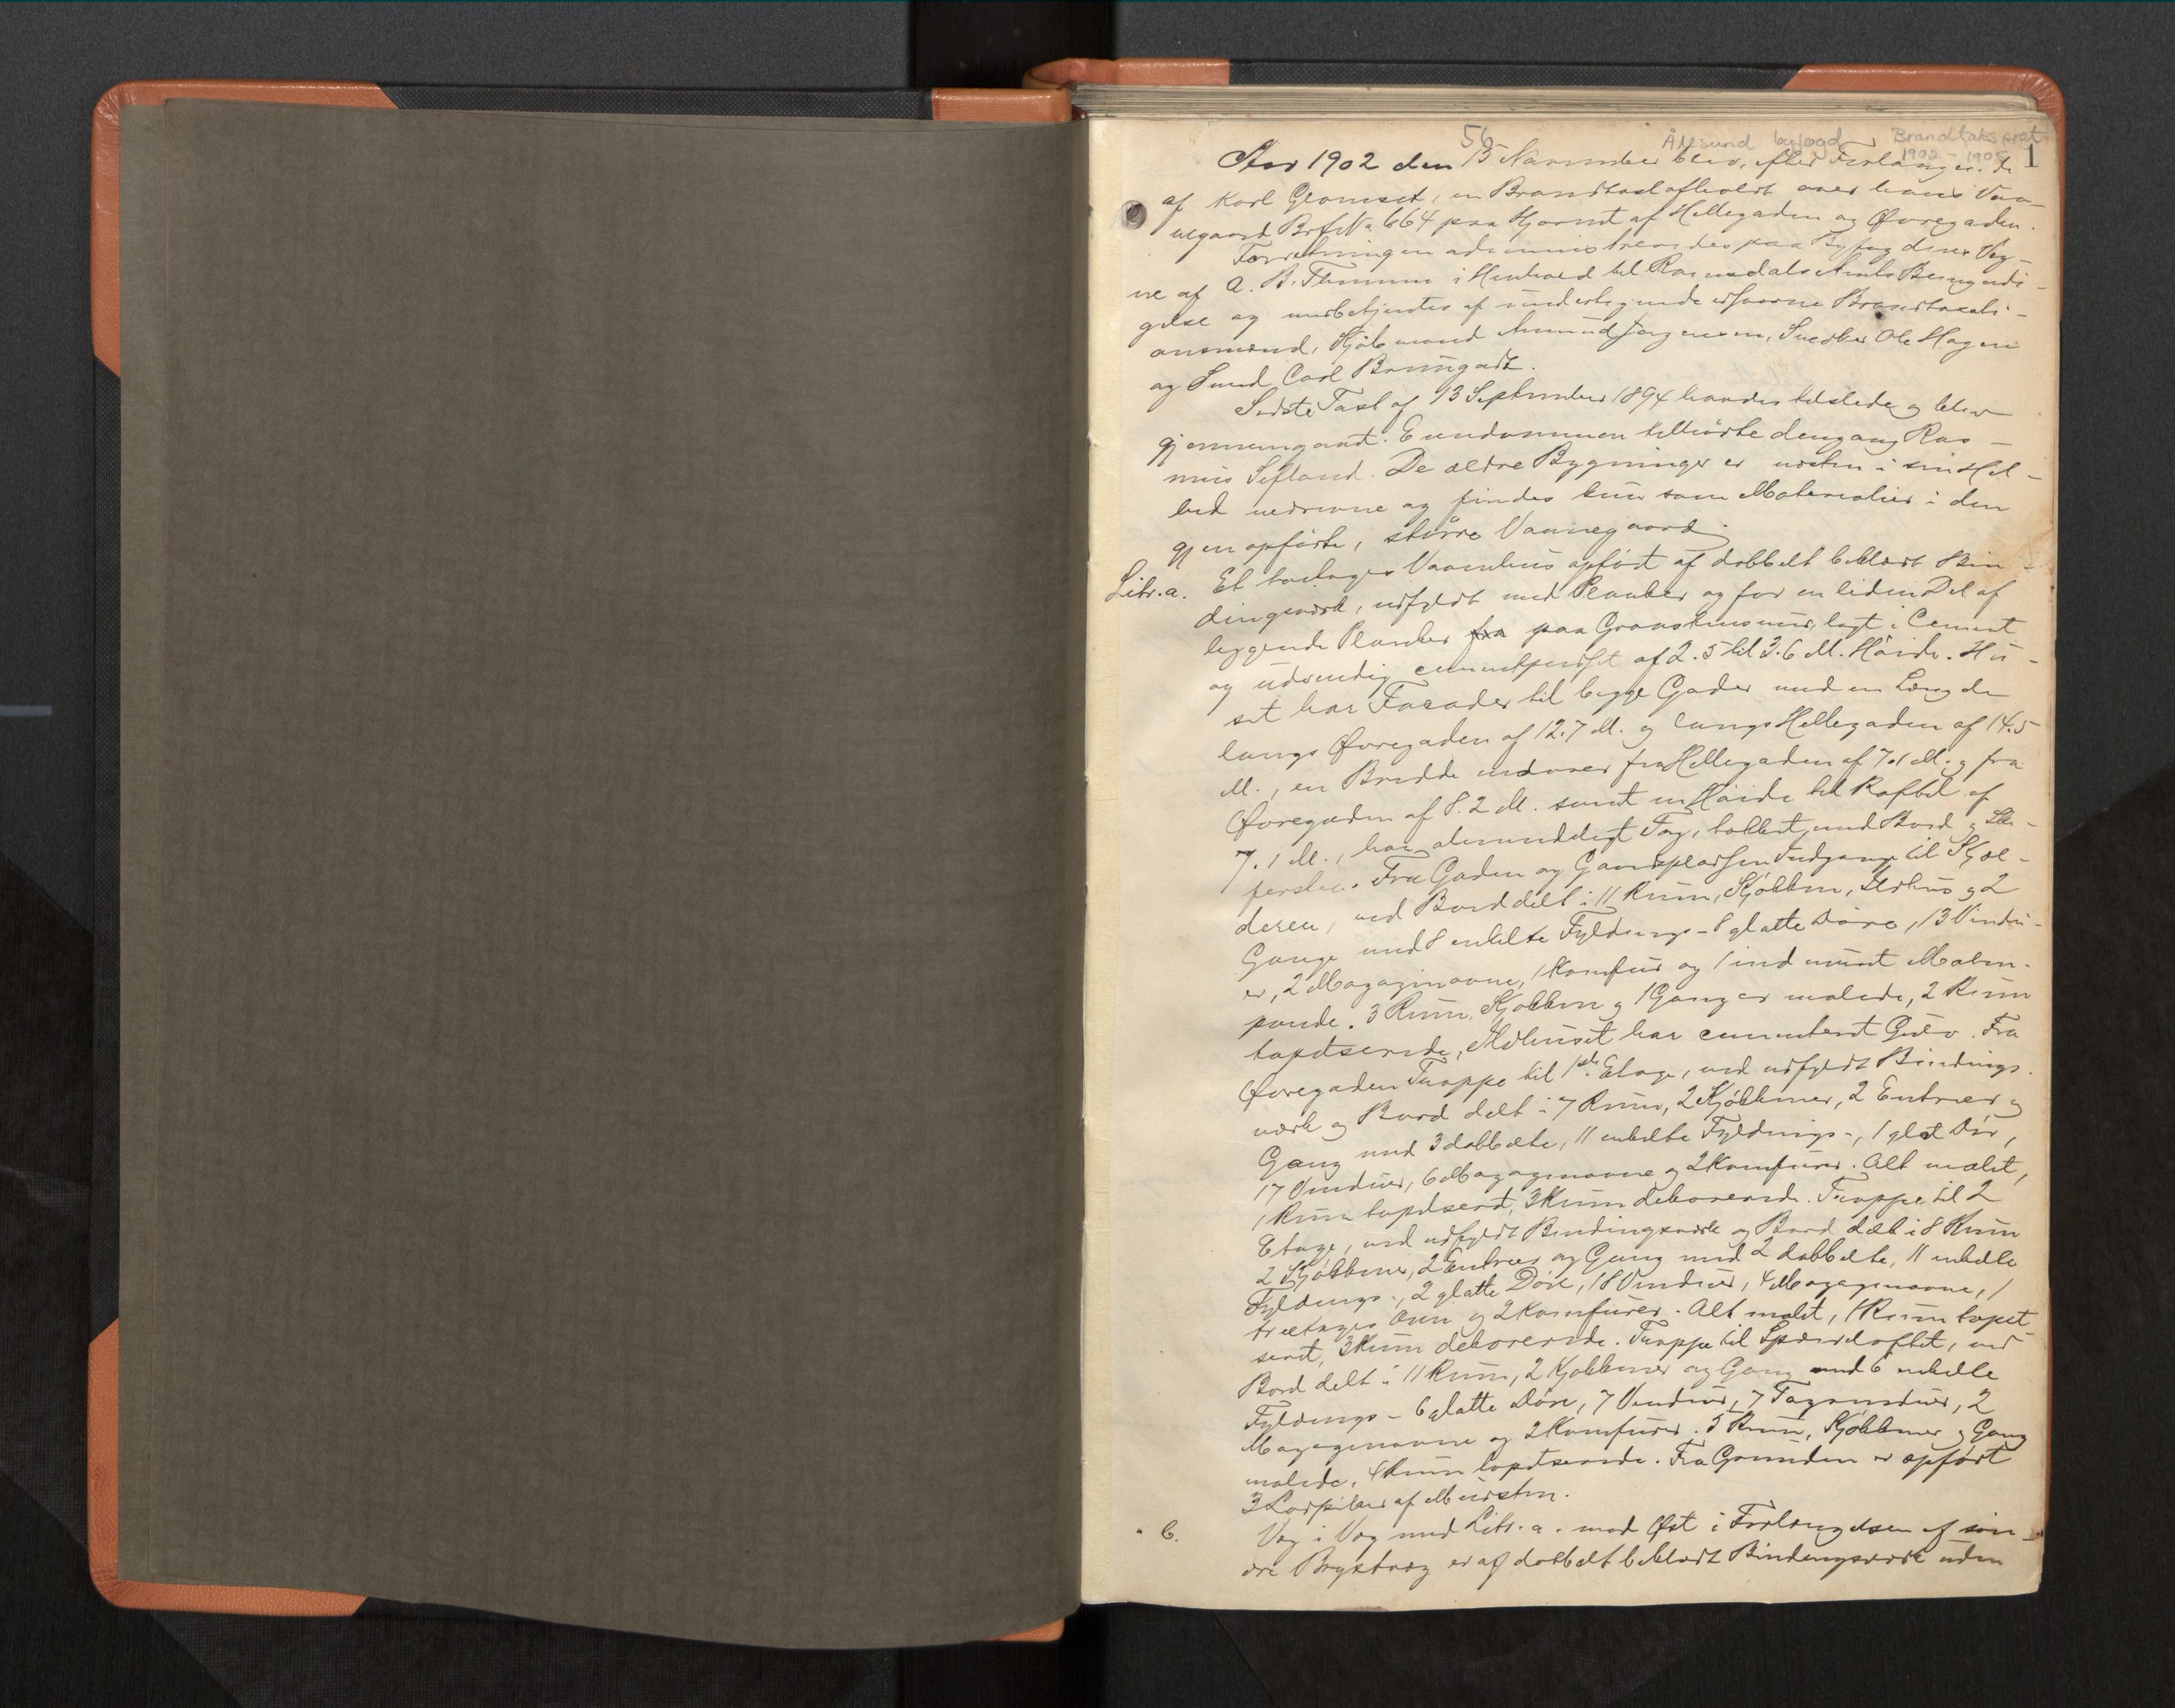 56
Ålesund byfogd Brandtakstprot.
1902 - 1905
1
Aar 1902 den 15 November blev, efter Forlangende
af Karl Gromset, en Brandtaxt afholdt over hans Vaa-
negaard Brf No. 664 paa Hjørnet af Hellegaden og Øvregaden.
Forretningen administreredes paa Byfogdens Veg-
ne af A. B. i Henhold til Romsdals Amts Bemyndi-
gelse og medbetjentes af undertegnede edsvorne Brandtaxati-
onsmænd, Kjøbmand Amund Jørgensen, Snedker Ole Hagen
og Smed Carl Bomgadt.
Sidste Taxt af 13 September 1894 havdes tilstede og blev
gjennemgaaet. Eiendommen tilhørte dengang Ras-
mus Sefland. De ældre Bygninger er næsten i sin Hel-
hed nedrevne og findes kun som Materialier i den
gjenopførte, større Vaanegaard.
Litr. a. Et toetages Vaanehus opført af dobbelt beklædt Bin-
dingsværk, udfyldt med Planker og for en liden Del af
liggende Planker fra paa Graastensmur, lagt i Cement
og udvendig cementpudset af 2.5 til 3.6 M. Høide. Hu-
set har Facader til begge Gader med en Længde
langs Øvregaden af 12.7 M. og langs Hellegaden af 14.5
M., en Bredde indover fra Hellegaden af 7.1 M. og fra
Øvregaden af 8.2 M. samt en Høide til Raftet af
7.1 M., har almindeligt Tag, tækket med Bord og Ski-
fersten. Fra Gaden og Gaardspladsen Indgange til Kjæl-
deren, ved Bord delt i 11 Rum, Kjøkken, Ildhus og 2
Gange med 8 enkelte Fyldings- 8 glatte Døre, 13 Vindu-
er, 2 Magasinovne, 1 Komfur og 1 indmuret Malm-
pande. 3 Rum, Kjøkken og 1 Gang er malede, 2 Rum
tapetserede, Ildhuset har cementeret Gulv. Fra
Øvregaden Trappe til 1ste Etage, ved udfyldt Bindings-
værk og Bord delt i 7 Rum, 2 Kjøkkener, 2 Entreer og
Gang med 3 dobbelte, 11 enkelte Fyldings-, 1 glat Dør,
17 Vinduer, 6 Magasinovne og 2 Komfurer. Alt malet,
1 Rum tapetseret, 3 Rum dekorerede. Trappe til 2
Etage, ved udfyldt Bindingsværk og Bord delt i 8 Rum
2 Kjøkkener, 2 Entreer og Gang med 2 dobbelte, 11 enkelte
Fyldings-, 2 glatte Døre, 18 Vinduer, 4 Magasinovne, 1
treetages Ovn og 2 Komfurer. Alt malet, 1 Rum tapet-
seret, 3 Rum dekorerede. Trappe til Sparreloftet, ved
Bord delt i 11 Rum, 2 Kjøkkener og Gang med 6 enkelte
Fyldings- 6 glatte Døre, 7 Vinduer, 7 Tagvinduer, 2
Magasinovne og 2 Komfurer. 5 Rum, Kjøkkener og Gang
malede, 4 Rum tapetserede. Fra Grunden er opført
3 Lodpiber af Mursten.
" b. Væg i Væg med Litr. a. mod Øst i Forlængelsen af søn-
dre Brystvæg er af dobbelt beklædt Bindingsværk uden